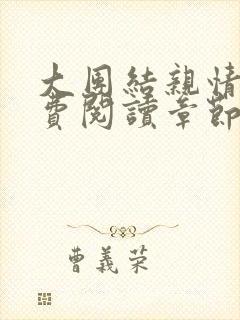 大團結親情
費閱讀章節
曹義荣